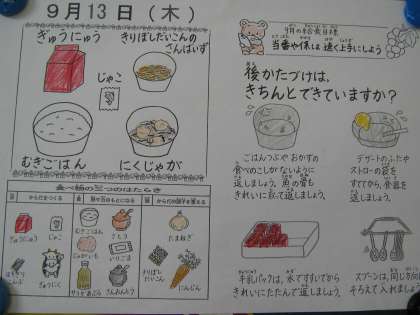 9月13日(木)
ぎゅうにゅう
きりぼしだいこんの
さんばいず
じゃこ
むぎごはん
にくじゃが
食べ物の三つのはたらき
ぎゅうにゅう
じゃこ
ぎゅうにく
むぎごはん
さとう
じゃがいも
サラダあぶら
たまねぎ
きりぼし
だいこん
にんじん
9月の給食目標
当番や係は、速く上手にしよう
後かたづけは、
きちんとできていますか?
ごはんつぶや おかずの
食べのこしがないように
返しましょう。魚の骨も
きれいに取って返しましょう。
デザートのふたや
ストローの袋を
すててから、食器を
返しましょう。
牛乳パックは、水ですすいでから
きれいにたたんで返しましょう。
スプーンは、同じ方向に
そろえて入れましょう。